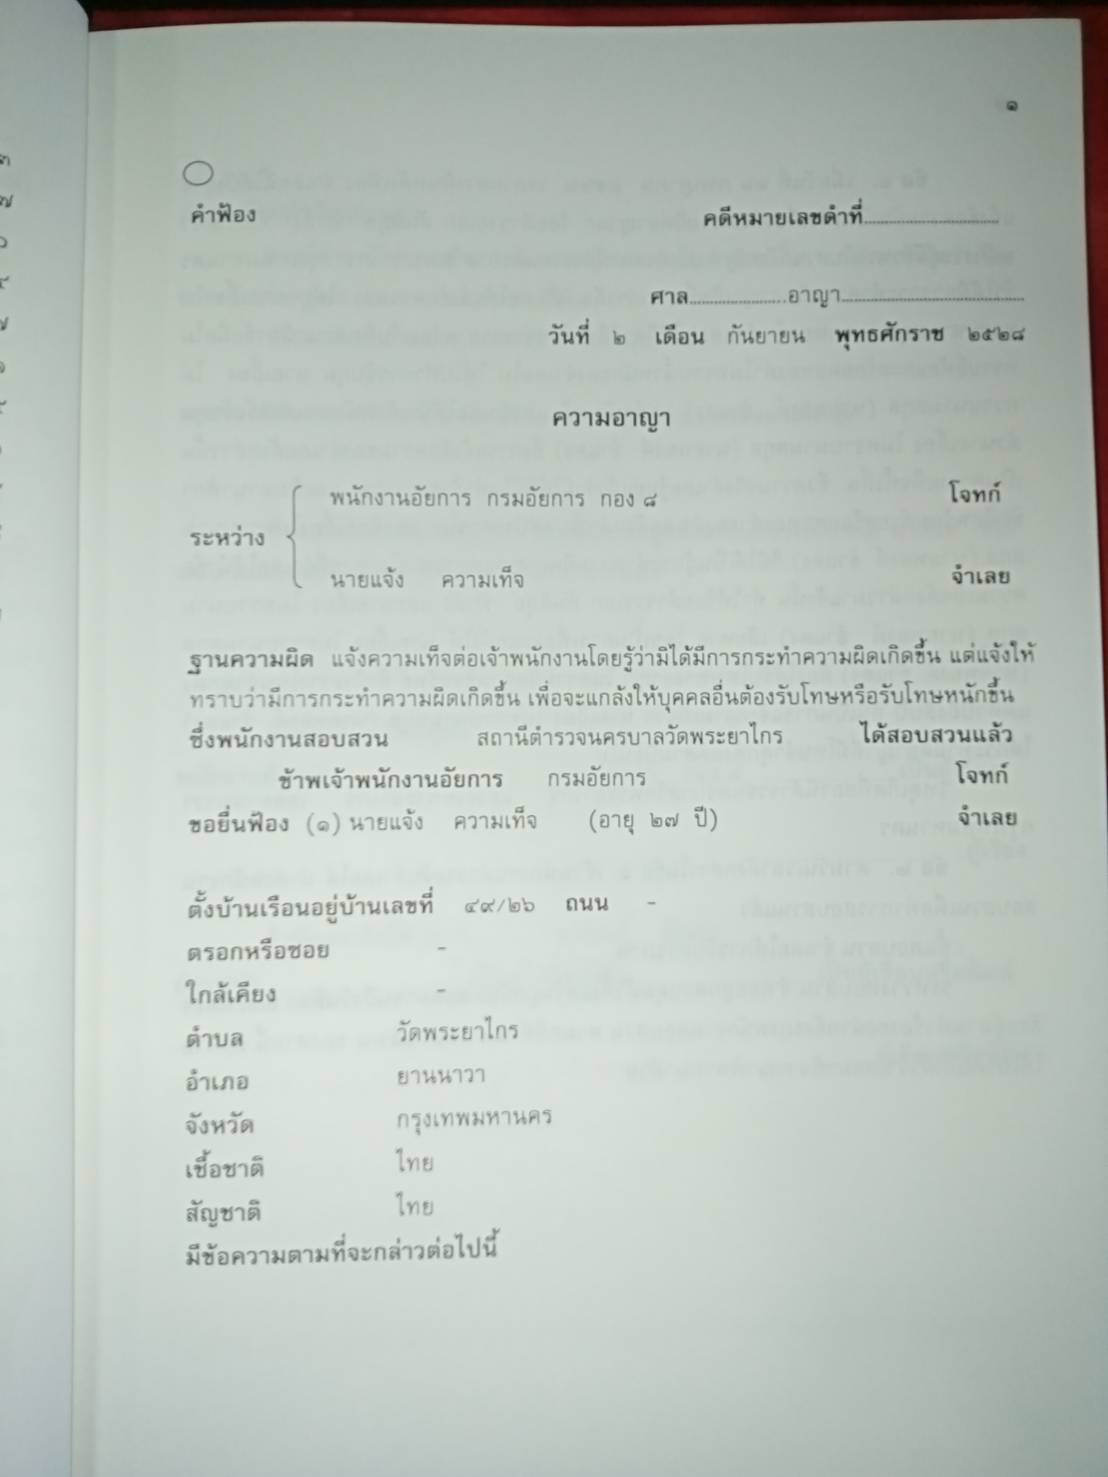 ๑
คำฟ้อง คดีหมายเลขดำที่..............................
ศาล......................อาญา........................................
วันที่ ๒ เดือน กันยายน พุทธศักราช ๒๕๒๘
ความอาญา
พนักงานอัยการ กรมอัยการ กอง ๘ โจทก์
ระหว่าง
นายแจ้ง ความเท็จ จำเลย
ฐานความผิด แจ้งความเท็จต่อเจ้าพนักงานโดยรู้ว่ามิได้มีการกระทำความผิดเกิดขึ้น แต่แจ้งให้
ทราบว่ามีการกระทำความผิดเกิดขึ้น เพื่อจะแกล้งให้บุคคลอื่นต้องรับโทษหรือรับโทษหนักขึ้น
ซึ่งพนักงานสอบสวน สถานีตำรวจนครบาลวัดพระยาไกร ได้สอบสวนแล้ว
ข้าพเจ้าพนักงานอัยการ กรมอัยการ โจทก์
ขอยื่นฟ้อง (๑) นายแจ้ง ความเท็จ (อายุ ๒๗ ปี) จำเลย
ตั้งบ้านเรือนอยู่บ้านเลขที่ ๔๙/๒๖ ถนน -
ตรอกหรือซอย -
ใกล้เคียง -
ตำบล วัดพระยาไกร
อำเภอ ยานนาวา
จังหวัด กรุงเทพมหานคร
เชื้อชาติ ไทย
สัญชาติ ไทย
มีข้อความตามที่จะกล่าวต่อไปนี้